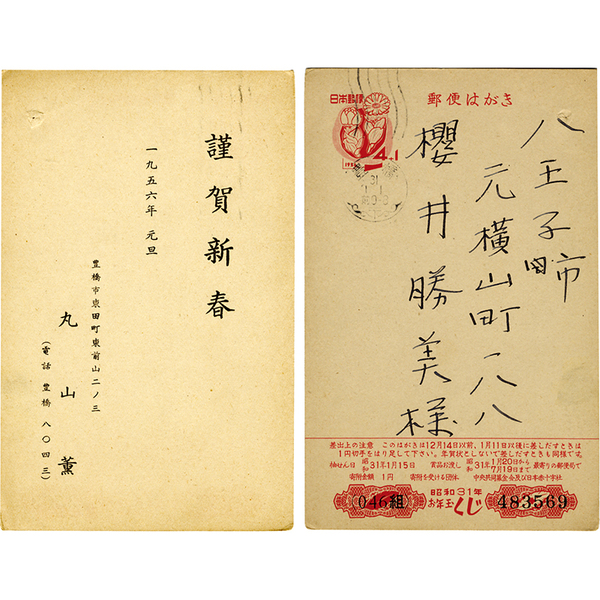 謹賀新春
一九五六年 元旦
豊橋市東田町東前山二ノ三
丸山薫
(電話 豊橋 八〇四三)
日本郵便
郵便はがき
4+1
八王子市
元横山町一八八
櫻井勝美様
差出上の注意 このはがきは12月14日以前、1月11日以後に差しだすときは
1円切手をはり足して下さい。年賀状としないで差しだすときも同様です。
抽せん日 昭和31年1月15日 賞品お渡し 昭和31年1月20日から7月19日まで 最寄りの郵便局で
寄附金額 1円 寄附を受ける団体 中央共同募金会及び日本赤十字社
046組
昭和31年
お年玉くじ
483569